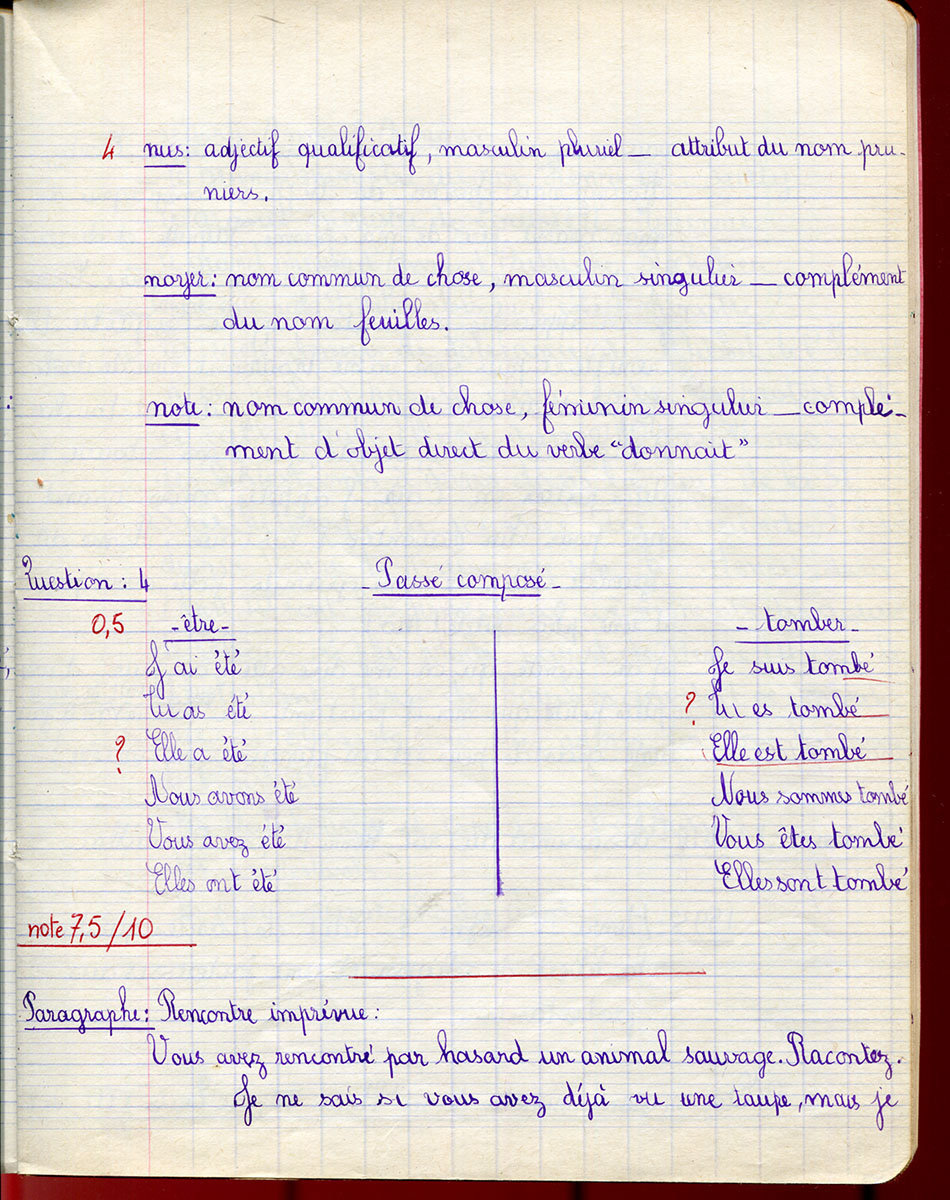 4 nus : adjectif qualificatif, masculin pluriel — attribut du nom pru-
niers.
noyer : nom commun de chose, masculin singulier — complément
du nom feuilles.
note : nom commun de chose, féminin singulier — complé-
ment d'objet direct du verbe "donnait"
Question : 4 - Passé composé -
0,5 - être - - tomber -
J'ai été Je suis tombé
Tu as été ? Tu es tombé
? Elle a été Elle est tombé
Nous avons été Nous sommes tombé
Vous avez été Vous êtes tombé
Elles ont été Elles sont tombé
note 7,5/10
Paragraphe : Rencontre imprévue :
Vous avez rencontré par hasard un animal sauvage. Racontez.
Je ne sais si vous avez déjà vu une taupe, mais je